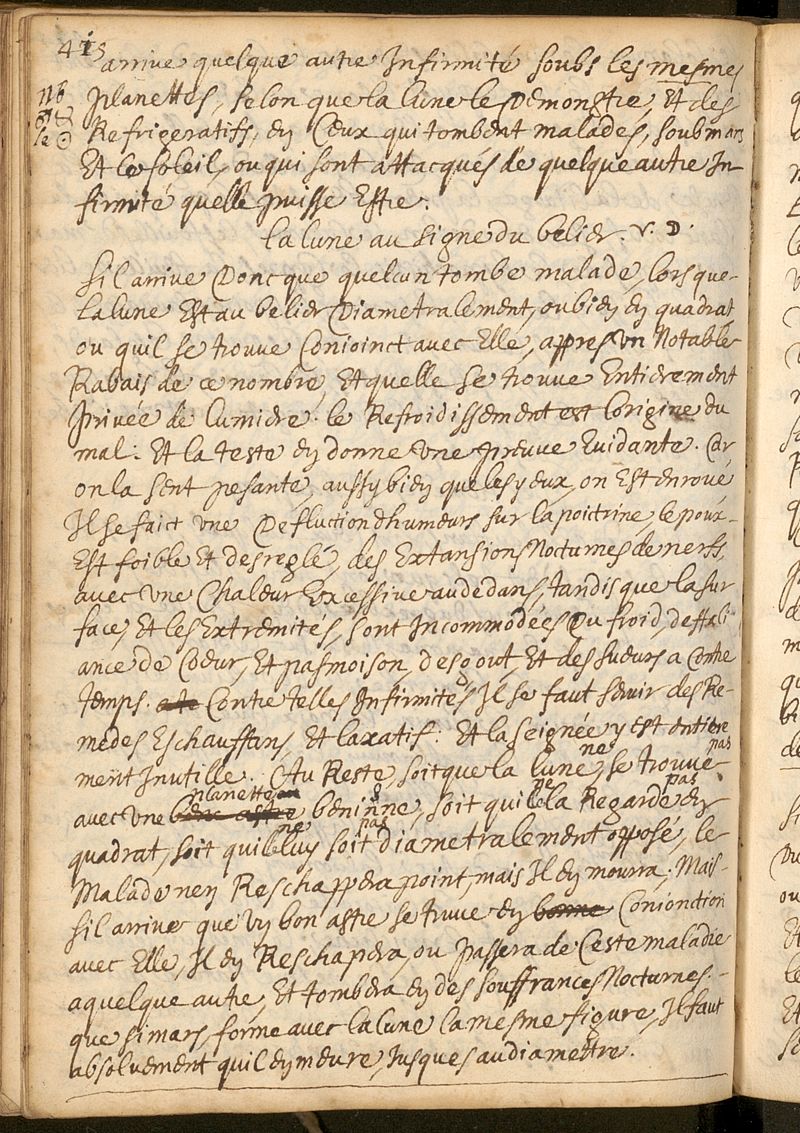 413
arrive quelque autre Infirmité soubs les mesmes
planettes, selon que la lune le Demonstre, Et des
Refrigeratifs, en Ceux qui tombent malades, soub mars
Et le soleil, ou qui sont attacqués de quelque autre In-
firmité quelle puisse Estre.
la lune au signe du belier. V. D.
sil arrive Doncque quelcun tombe malade, lors que
la lune Est au belier Diametralement, ou bien en quadrat,
ou quil se trouve Conioinct avec Elle, appres un Notable
Rabais de ce nombre, Et quelle se trouve Entierement
privée de lumiere. le Refroidissement est lorigine du
mal: Et la teste en donne une preuve Evidante. Car
on la sent pesante, aussy bien que les yeux, on Est enroué
Il se faict une Defluction dhumeurs sur la poictrine, le poux
Est foible Et desreglé, des Extansions Nocturnes de nerfs,
avec une Chaleur Excessive au dedans, tandis que la sur
face, Et les Extremités, sont Incommodées Du froid, deffali
ance de Coeur, Et pasmoison, desgout, Et des sueurs a Contre
temps. Contre telles Infirmités Il se faut servir des Re-
medes Eschauffans, Et laxatif: Et la seignée y est entiere
ment Inutille. Au Reste, soit que la lune, ne se trouve pas
avec une planette beninne, soit quil ne la Regarde pas en
quadrat, soit quil ne luy soit pas diametralement opposé, le
Malade nen Reschappera point, mais Il en mourra; Mais
sil arrive que un bon astre se truve en bonne Conionction
avec Elle, Il en Reschapera, ou passera de Ceste maladie
a quelque autre, Et tombera en des souffrances Nocturnes.
que si mars, forme avec la lune la mesme figure, Il faut
absoluement quil en meure, Jusques au diamettre.